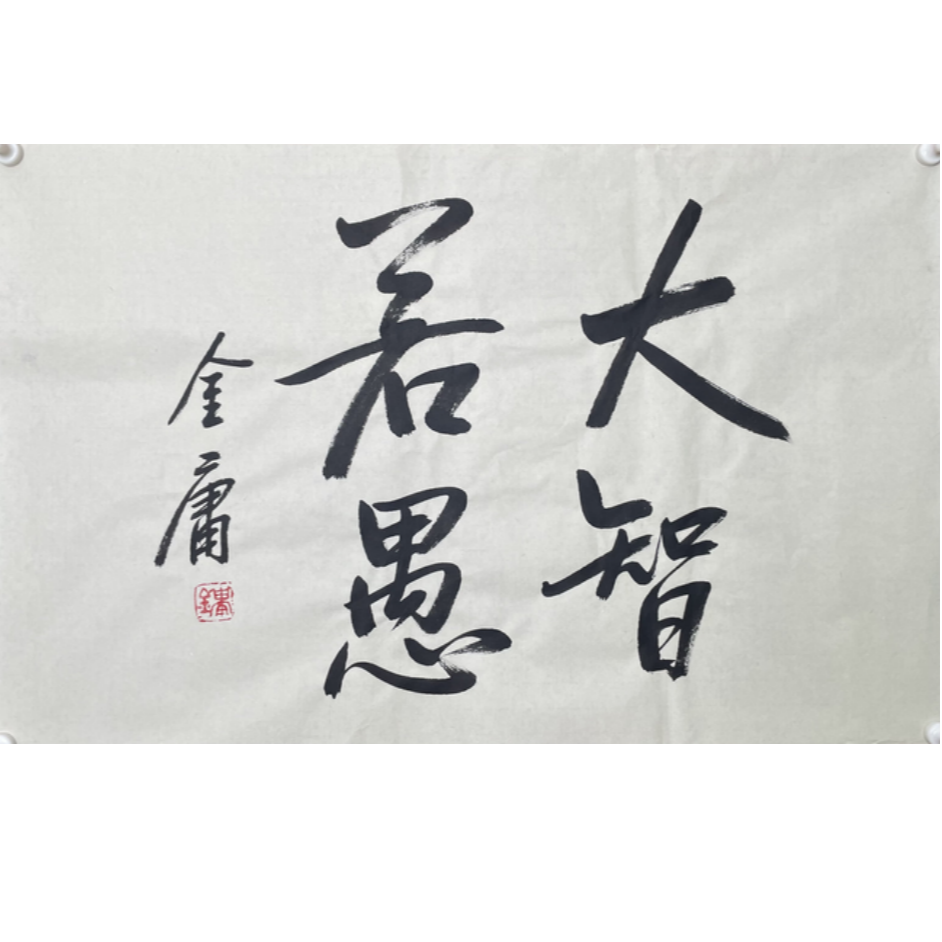 大智
若愚
金庸